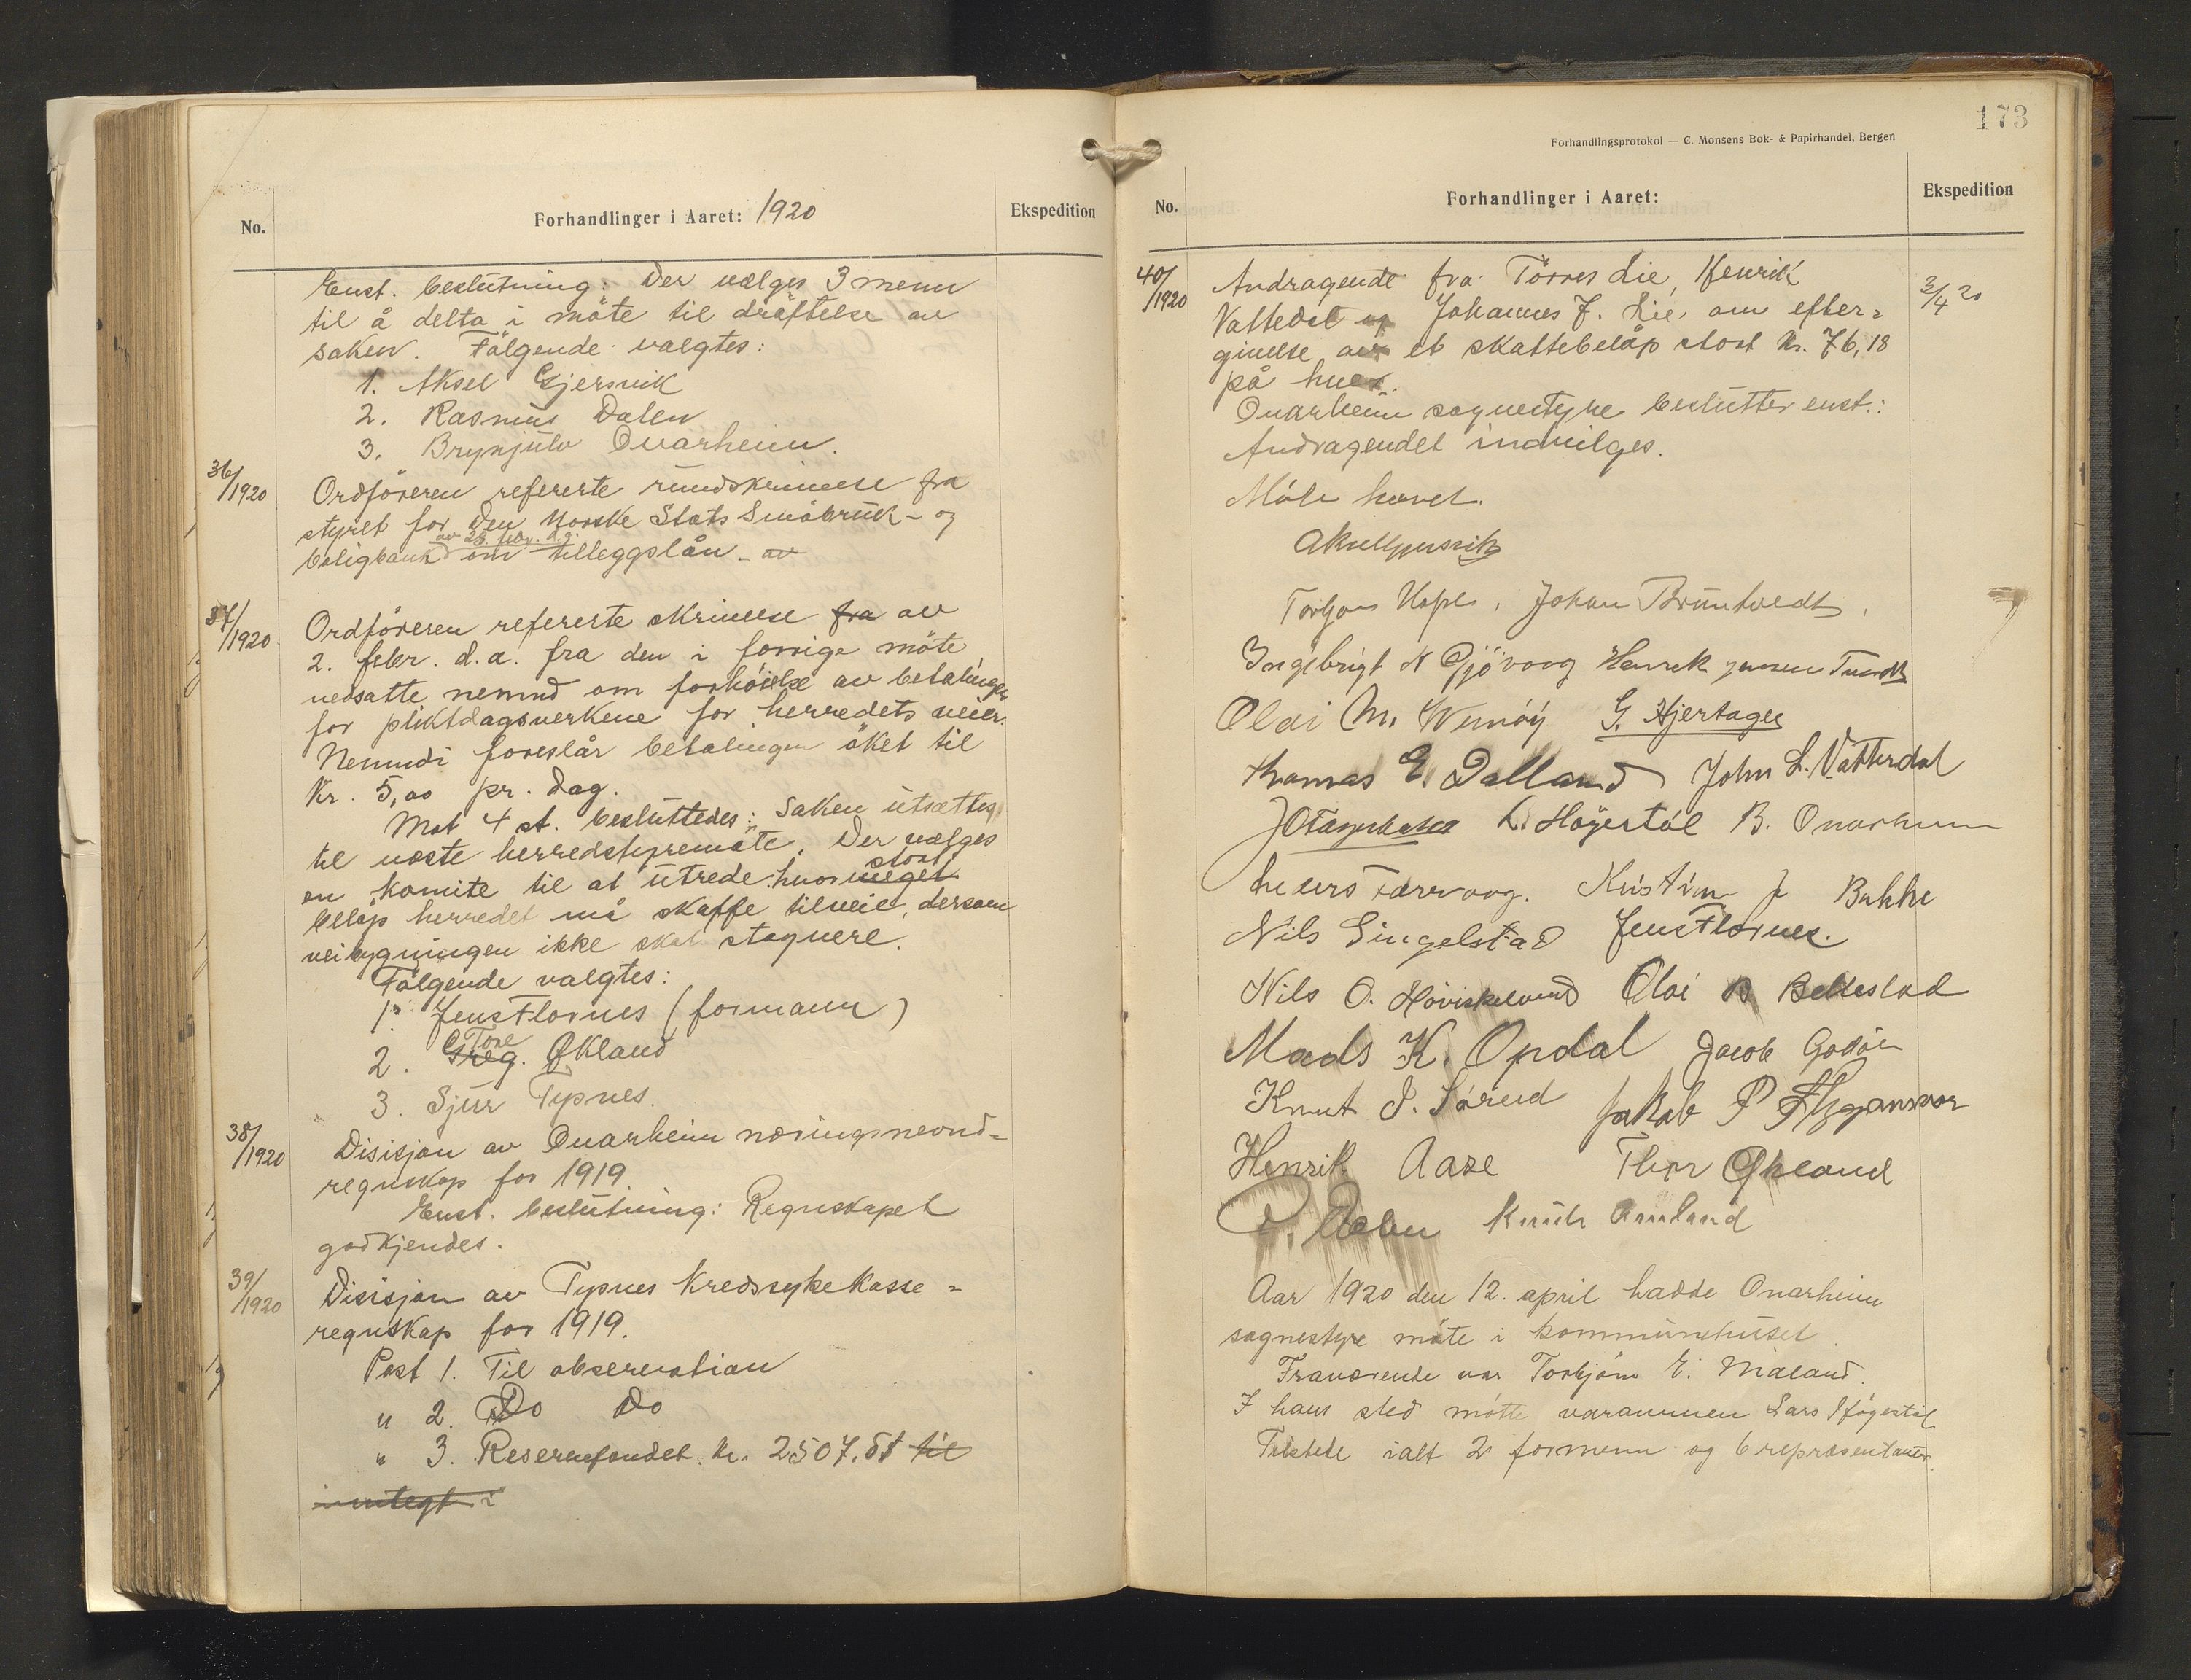 No.
Forhandlinger i Aaret: 1920
Ekspedition
Enst. beslutning: Der vælges 3 menn
til å delta i möte til dräftelse av
saken. Fölgende valgtes:
1. Aksel Gjersvik
2. Rasmus Dalen
3. Brynjulv Onarheim.
36/1920
Ordföreren refererte rundskrivelse fra
styret for Den Norske Stats Småbruk- og
av 28. febr. d.å.
boligbank om tilleggslån. av
37/1920
Ordföreren refererte skrivelse fra av
2. febr. d.a. fra den i forrige möte
nedsatte nemnd om forhöielse av betalingen
for pliktdagsverkene for herredets veier.
Nemndi foreslår betalingen öket til
Kr. 5,00 pr. dag.
Mot 4 st. besluttedes: Saken utsættes
til næste herredstyremöte. Der vælges
stort
en komite til at utrede hvor meget
belöp herredet må skaffe tilveie, dersom
veibygningen ikke skal stagnere.
Fölgende valgtes:
1. Jens Flornes (formann)
Tore
2. Greg. Økland
3. Sjur Typnes.
38/1920
Disisjon av Onarheim næringsnevnd-
regnskap for 1919.
Enst. beslutning: Regnskapet
godkjendes.
39/1920
Disisjon av Typnes Kredssykekasse-
regnskap for 1919.
Post 1. Til observation
" 2. Do Do
" 3. Reservefondet kr. 2507. til
inntegt i
173
Forhandlingsprotokol — C. Monsens Bok- & Papirhandel, Bergen
No.
Forhandlinger i Aaret:
Ekspedition
40/1920
3/4 20
Andragende fra Törres Lie, Henrik
Vattedal og Johannes J. Lie om efter-
givelse av et skattebelöp stort kr. 76,18
på hver.
Onarheim sognestyre beslutter enst.:
Andragendet indvilges.
Möte hævet.
Aksel Gjersvik
Torbjørn Hope, Johan Bruntvedt,
Ingebrigt N Gjövaag Henrik Jensen
Olai M. Vernöy G. Hjertager
Thomas E. Dalland John L. Vatterdal
L. Högestöl B. Onarheim
Færvaag. Kristian J Bukke
Nils Singelstad Jens Flornes.
Nils O. Höviskeland Olai B Belleslad
Mads K. Opdal Jacob Godöen
Knut J. Söreid Jakob P
Henrik Aase Thor Økland
R. Dalen Knut Amland
Aar 1920 den 12. april hadde Onarheim
sognestyre möte i kommunehuset.
Fraværende var Torbjörn E. Mæland.
I hans sted mötte varamannen Lars Högestöl
Tilstede ialt 2 formenn og 6 repræsentanter.